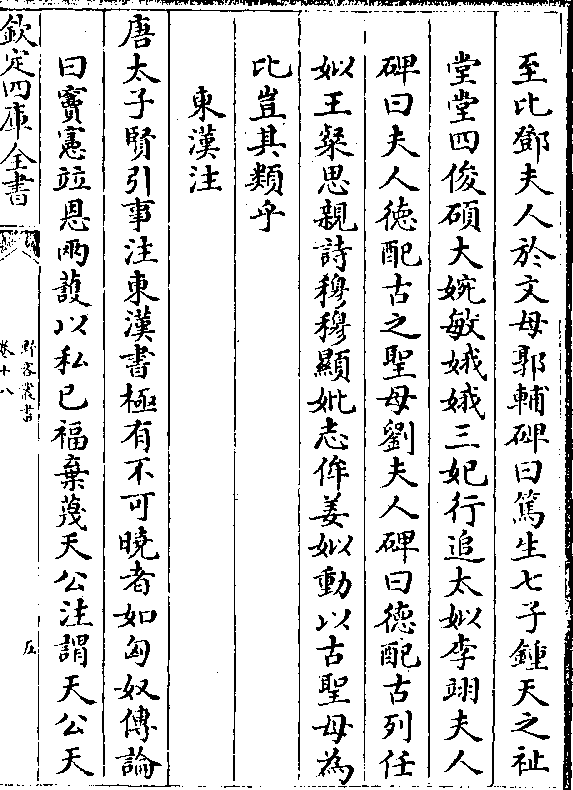 至比鄧夫人於文母郭輔碑曰篤生七子鍾天之祉
堂堂四俊碩大婉敏娥娥三妃行追太姒李翊夫人
碑曰夫人德配古之聖母劉夫人碑曰德配古列任
姒王粲思親詩穆穆顯妣志侔姜姒動以古聖母為
比豈其類乎
東漢注
唐太子賢引事注東漢書極有不可曉者如匈奴傳論
曰竇憲竝恩兩䕶以私已福棄蔑天公注謂天公天
欽定四庫全書
野客叢書
卷十八
五